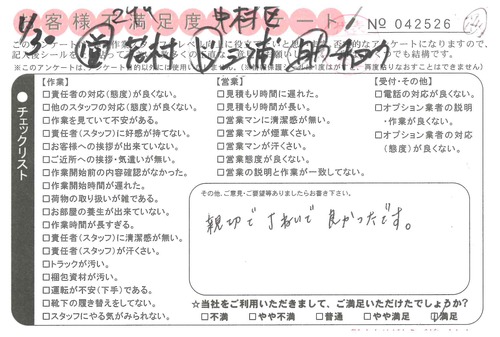 お客様不満足度アンケート！ No 042526
1/30 24才 中村区
営 石村 三浦
※このアンケートは、アンケート目的以外には使用いたしません。
チェックリスト
【作業】
□責任者の対応(態度)が良くない。
□他のスタッフの対応(態度)が良くない。
□作業を見ていて不安がある。
□責任者(スタッフ)に好感が持てない。
□お客様への挨拶が出来ていない。
□ご近所への挨拶・気遣いが無い。
□作業開始前の内容確認がなかった。
□作業開始時間が遅れた。
□荷物の取り扱いが雑である。
□お部屋の養生が出来ていない。
□作業時間が長すぎる。
□責任者(スタッフ)に清潔感が無い。
□責任者(スタッフ)が汗くさい。
□トラックが汚い。
□梱包資材が汚い。
□運転が不安(下手)である。
□靴下の履き替えをしてない。
□スタッフにやる気がみられない。
【営業】
□見積もり時間に遅れた。
□見積もり時間が長い。
□営業マンに清潔感が無い。
□営業マンが煙草くさい。
□営業マンが汗くさい。
□営業態度が良くない。
□営業の説明と作業が一致してない。
【受付・その他】
□電話の対応が良くない。
□オプション業者の説明
・作業が良くない。
□オプション業者の対応
(態度)が良くない。
その他、ご意見・ご要望等ありましたらお書き下さい。
親切で丁ねいで良かったです。
☆当社をご利用いただきまして、ご満足いただけたでしょうか？
□不満 □やや不満 □普通 □やや満足 □満足